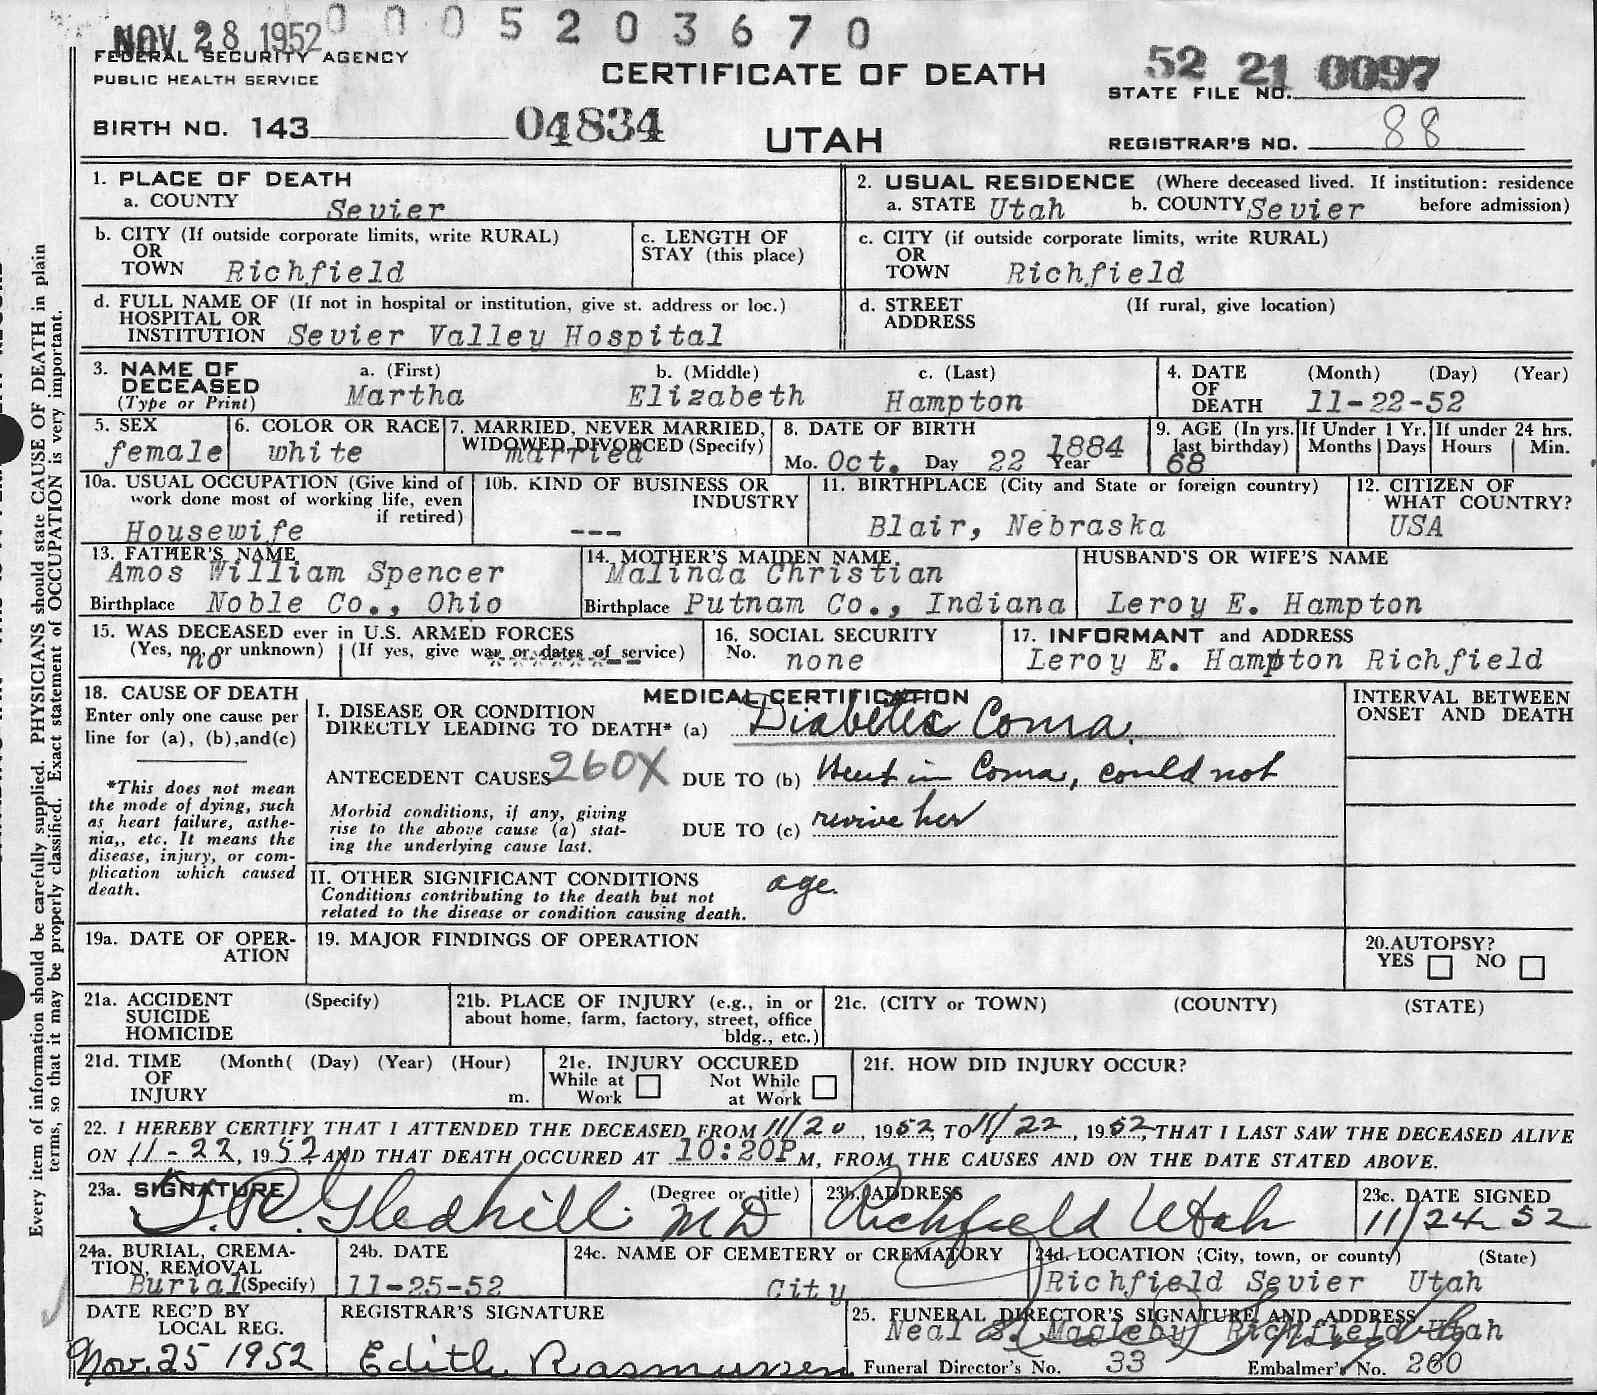 NOV 28 1952 0 0 0 5 2 0 3 6 7 0
FEDERAL SECURITY AGENCY
PUBLIC HEALTH SERVICE
CERTIFICATE OF DEATH
52 21 0097
STATE FILE NO.
BIRTH NO. 143 04834
UTAH
REGISTRAR'S NO. 88
1. PLACE OF DEATH
a. COUNTY Sevier
2. USUAL RESIDENCE (Where deceased lived. If institution: residence
a. STATE Utah b. COUNTY Sevier before admission)
b. CITY (If outside corporate limits, write RURAL)
OR
TOWN Richfield
c. LENGTH OF
STAY (this place)
c. CITY (if outside corporate limits, write RURAL)
OR
TOWN Richfield
d. FULL NAME OF (If not in hospital or institution, give st. address or loc.)
HOSPITAL OR
INSTITUTION Sevier Valley Hospital
d. STREET (If rural, give location)
ADDRESS
3. NAME OF a. (First) b. (Middle) c. (Last)
DECEASED Martha Elizabeth Hampton
(Type or Print)
4. DATE (Month) (Day) (Year)
OF
DEATH 11-22-52
5. SEX
female
6. COLOR OR RACE
white
7. MARRIED, NEVER MARRIED,
WIDOWED, DIVORCED (Specify)
married
8. DATE OF BIRTH
Mo. Oct. Day 22 Year 1884
9. AGE (In yrs.
last birthday)
68
If Under 1 Yr.
Months Days
If under 24 hrs.
Hours Min.
10a. USUAL OCCUPATION (Give kind of
work done most of working life, even
if retired)
Housewife
10b. KIND OF BUSINESS OR
INDUSTRY
---
11. BIRTHPLACE (City and State or foreign country)
Blair, Nebraska
12. CITIZEN OF
WHAT COUNTRY?
USA
13. FATHER'S NAME
Amos William Spencer
Birthplace Noble Co., Ohio
14. MOTHER'S MAIDEN NAME
Malinda Christian
Birthplace Putnam Co., Indiana
HUSBAND'S OR WIFE'S NAME
Leroy E. Hampton
15. WAS DECEASED ever in U.S. ARMED FORCES
(Yes, no, or unknown) (If yes, give war or dates of service)
no
16. SOCIAL SECURITY
No. none
17. INFORMANT and ADDRESS
Leroy E. Hampton Richfield
18. CAUSE OF DEATH
Enter only one cause per
line for (a), (b),and(c)
*This does not mean
the mode of dying, such
as heart failure, asthe-
nia,, etc. It means the
disease, injury, or com-
plication which caused
death.
MEDICAL CERTIFICATION
I. DISEASE OR CONDITION
DIRECTLY LEADING TO DEATH* (a) Diabetic Coma
ANTECEDENT CAUSES 260X DUE TO (b) Went in Coma, could not
Morbid conditions, if any, giving
rise to the above cause (a) stat-
ing the underlying cause last.
DUE TO (c) revive her
INTERVAL BETWEEN
ONSET AND DEATH
II. OTHER SIGNIFICANT CONDITIONS age.
Conditions contributing to the death but not
related to the disease or condition causing death.
19a. DATE OF OPER-
ATION
19. MAJOR FINDINGS OF OPERATION
20.AUTOPSY?
YES NO
21a. ACCIDENT (Specify)
SUICIDE
HOMICIDE
21b. PLACE OF INJURY (e.g., in or
about home, farm, factory, street, office
bldg., etc.)
21c. (CITY or TOWN) (COUNTY) (STATE)
21d. TIME (Month( (Day) (Year) (Hour)
OF
INJURY m.
21e. INJURY OCCURED
While at Work Not While at Work
21f. HOW DID INJURY OCCUR?
22. I HEREBY CERTIFY THAT I ATTENDED THE DECEASED FROM 11/20, 1952, TO 11/22, 1952, THAT I LAST SAW THE DECEASED ALIVE
ON 11-22, 1952, AND THAT DEATH OCCURED AT 10:20P M, FROM THE CAUSES AND ON THE DATE STATED ABOVE.
23a. SIGNATURE (Degree or title)
T. R. Gledhill MD
23b. ADDRESS
Richfield Utah
23c. DATE SIGNED
11/24-52
24a. BURIAL, CREMA-
TION, REMOVAL
Burial (Specify)
24b. DATE
11-25-52
24c. NAME OF CEMETERY or CREMATORY
City
24d. LOCATION (City, town, or county) (State)
Richfield Sevier Utah
DATE REC'D BY
LOCAL REG.
Nov. 25 1952
REGISTRAR'S SIGNATURE
Edith Rasmussen
25. FUNERAL DIRECTOR'S SIGNATURE AND ADDRESS
Neal S. Magleby Richfield Utah
Funeral Director's No. 33 Embalmer's No. 260
Every item of information should be carefully supplied. PHYSICIANS should state CAUSE OF DEATH in plain
terms, so that it may be properly classified. Exact statement of OCCUPATION is very important.